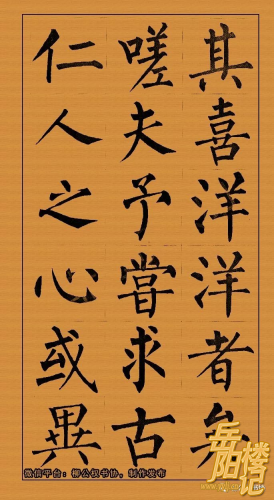 其喜洋洋者矣
嗟夫予嘗求古
仁人之心或異
微信平台：柳公权书协，制作发布
岳阳楼记